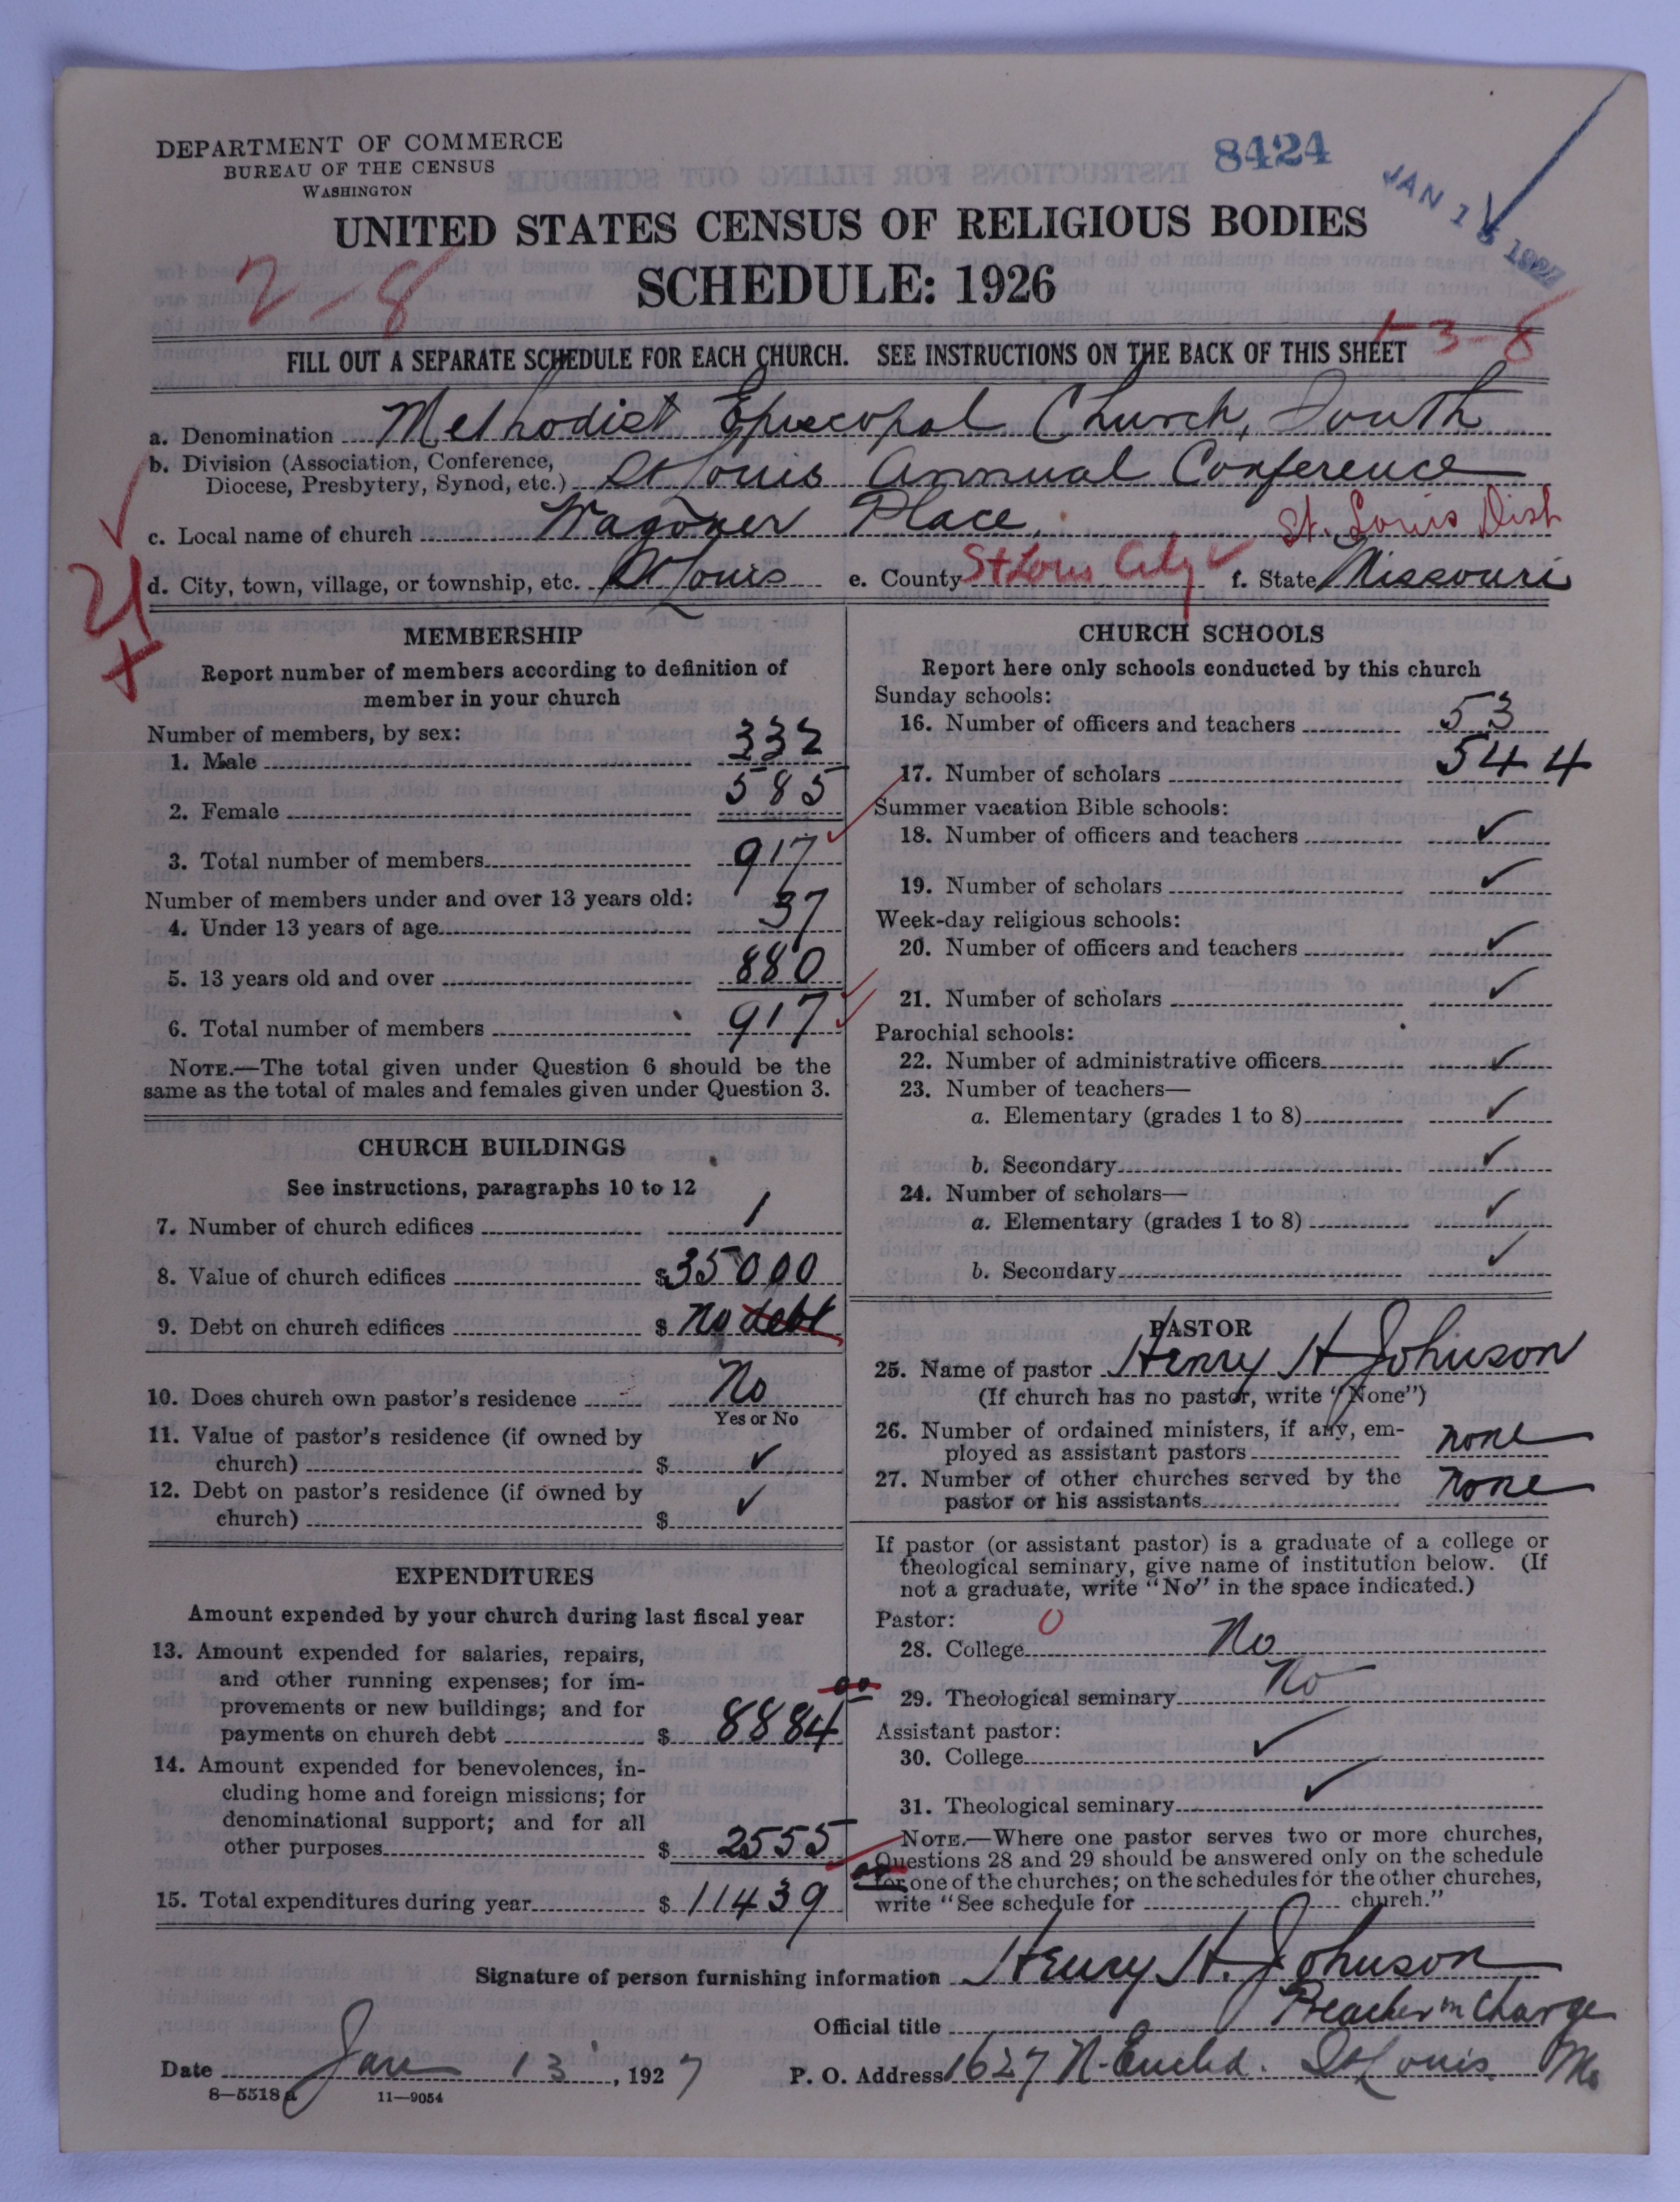 DEPARTMENT OF COMMERCE
BUREAU OF THE CENSUS
WASHINGTON
8424
JAN 15 1927
UNITED STATES CENSUS OF RELIGIOUS BODIES
SCHEDULE: 1926
2-8
1-3-8
FILL OUT A SEPARATE SCHEDULE FOR EACH CHURCH. SEE INSTRUCTIONS ON THE BACK OF THIS SHEET
a. Denomination Methodist Episcopal Church, South
b. Division (Association, Conference,
Diocese, Presbytery, Synod, etc.) St Louis Annual Conference
c. Local name of church Wagoner Place, St. Louis Dist
d. City, town, village, or township, etc. St Louis e. County St Louis City ✓ f. State Missouri
MEMBERSHIP
Report number of members according to definition of
member in your church
Number of members, by sex:
1. Male 332
2. Female 585
3. Total number of members 917
Number of members under and over 13 years old:
4. Under 13 years of age 37
5. 13 years old and over 880
6. Total number of members 917
NOTE.—The total given under Question 6 should be the
same as the total of males and females given under Question 3.
CHURCH BUILDINGS
See instructions, paragraphs 10 to 12
7. Number of church edifices 1
8. Value of church edifices $35000
9. Debt on church edifices $ No debt
10. Does church own pastor's residence No
Yes or No
11. Value of pastor's residence (if owned by
church) $ ✓
12. Debt on pastor's residence (if owned by
church) $ ✓
EXPENDITURES
Amount expended by your church during last fiscal year
13. Amount expended for salaries, repairs,
and other running expenses; for im-
provements or new buildings; and for
payments on church debt $ 8884 00
14. Amount expended for benevolences, in-
cluding home and foreign missions; for
denominational support; and for all
other purposes $ 2555
15. Total expenditures during year $ 11439 00
CHURCH SCHOOLS
Report here only schools conducted by this church
Sunday schools:
16. Number of officers and teachers 53
17. Number of scholars 544
Summer vacation Bible schools:
18. Number of officers and teachers ✓
19. Number of scholars ✓
Week-day religious schools:
20. Number of officers and teachers ✓
21. Number of scholars ✓
Parochial schools:
22. Number of administrative officers ✓
23. Number of teachers—
a. Elementary (grades 1 to 8) ✓
b. Secondary ✓
24. Number of scholars—
a. Elementary (grades 1 to 8) ✓
b. Secondary ✓
PASTOR
25. Name of pastor Henry H Johnson
(If church has no pastor, write "None")
26. Number of ordained ministers, if any, em-
ployed as assistant pastors none
27. Number of other churches served by the
pastor or his assistants None
If pastor (or assistant pastor) is a graduate of a college or
theological seminary, give name of institution below. (If
not a graduate, write "No" in the space indicated.)
Pastor: 0
28. College No
29. Theological seminary No
Assistant pastor:
30. College ✓
31. Theological seminary ✓
NOTE.—Where one pastor serves two or more churches,
Questions 28 and 29 should be answered only on the schedule
for one of the churches; on the schedules for the other churches,
write "See schedule for church."
Signature of person furnishing information Henry H. Johnson
Official title Preacher in Charge
Date Jan 13, 1927 P. O. Address 1627 N. Euclid. St Louis. Mo
8—5518 a 11—9054